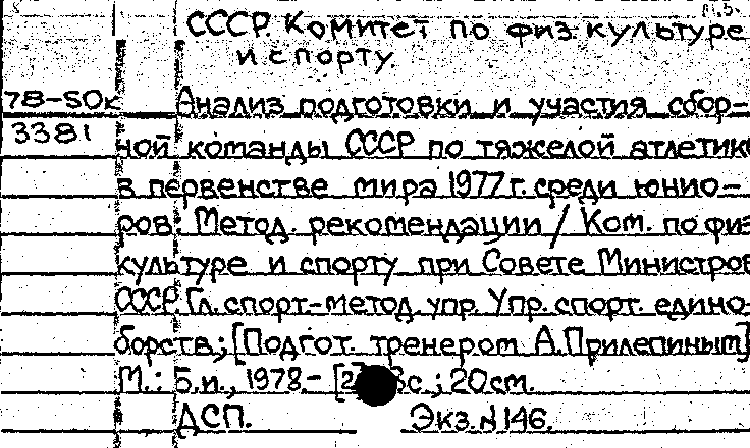 СССР. Комитет по физ. культуре
и спорту.
78-50к Анализ подготовки и участия сбор-
3381 ной команды СССР по тяжелой атлетике
в первенстве мира 1977 г. среди юнио-
ров: Метод. рекомендации / Ком. по физ
культуре и спорту при Совете Министров
СССР. Гл. спорт.-метод. упр. Упр. спорт. едино-
борств; [Подгот. тренером А.Прилепиным]
М.: Б.и., 1978.- с.; 20см.
ДСП. Экз.№146.